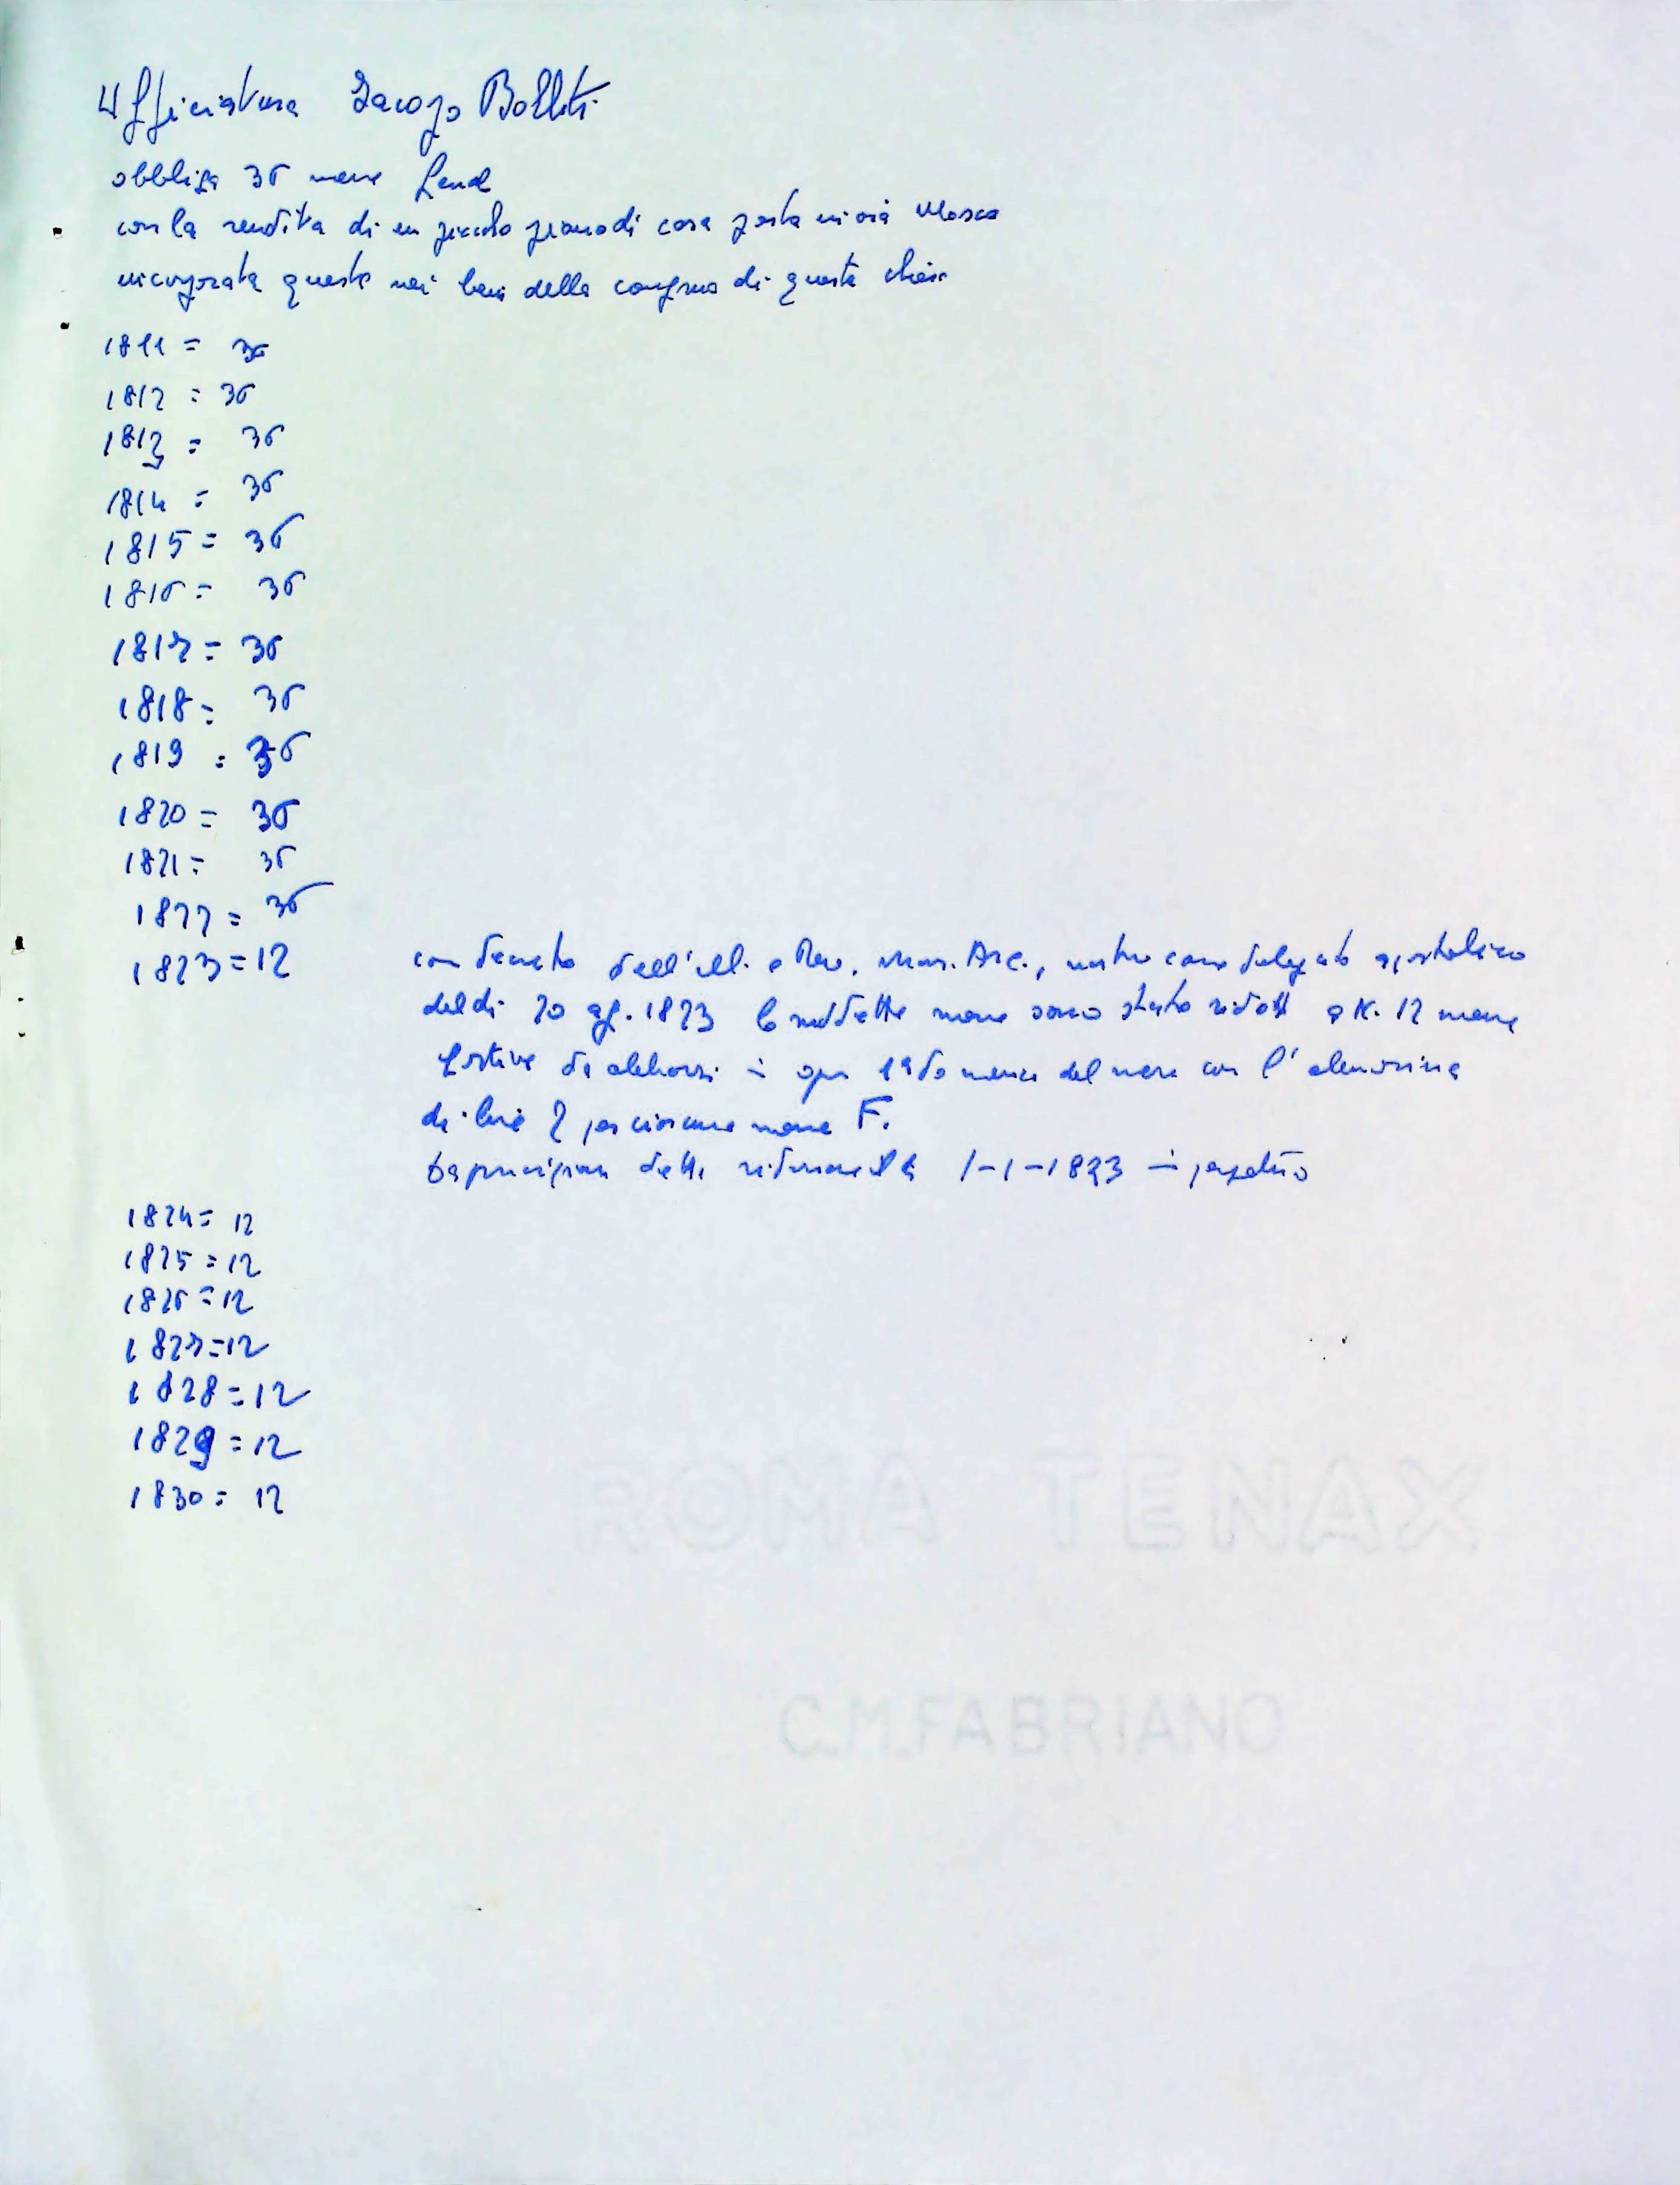 Ufficiatura Iacopo Bolleti
obbliga 36 messe
con la rendita di un piccolo piano di casa posta in via
incorporata questa nei beni della congrua di questa chiesa
1811 = 36
1812 = 36
1813 = 36
1814 = 36
1815 = 36
1816 = 36
1817 = 36
1818 = 36
1819 = 36
1820 = 36
1821 = 36
1822 = 36
1823 = 12 con decreto dell'ill. e Rev. Mons. Arc., nostro come delegato apostolico
del dì 20 ag. 1823 le suddette messe sono state ridotte a 12 messe
festive da celebrarsi in ogni 1ª domenica del mese con l'elemosina
di lire 2 per ciascuna messa F.
detta riduzione 1-1-1823 in perpetuo
1824 = 12
1825 = 12
1826 = 12
1827 = 12
1828 = 12
1829 = 12
1830 = 12
ROMA TENAX
C.M.FABRIANO